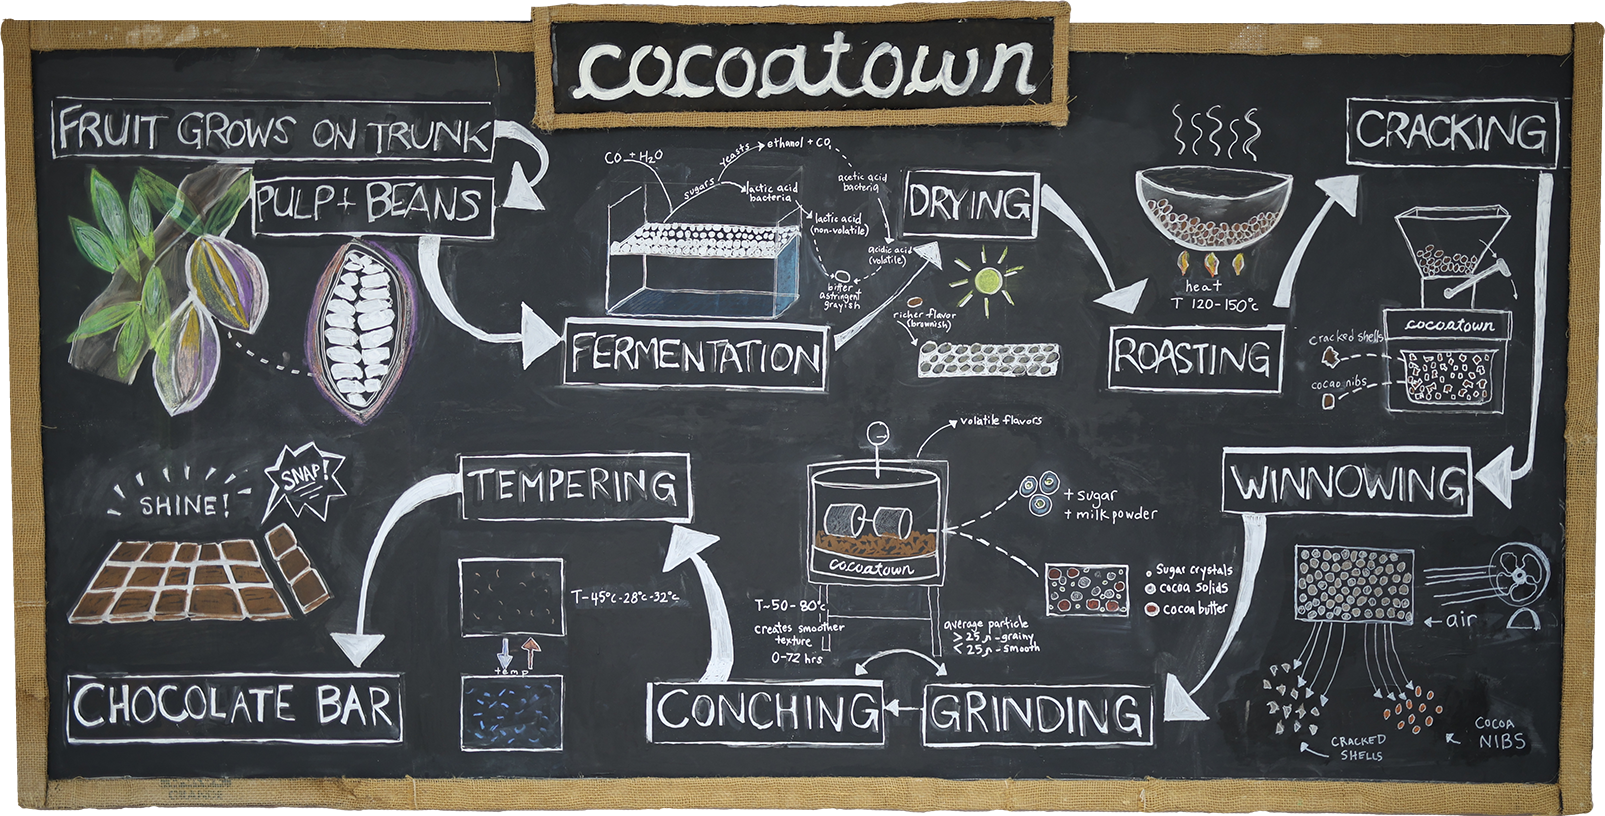 cocoatown
FRUIT GROWS ON TRUNK
PULP + BEANS
CO + H₂O
sugars
yeasts
ethanol + CO₂
lactic acid
bacteria
acetic acid
bacteria
lactic acid
(non-volatile)
acidic acid
(volatile)
bitter
astringent
grayish
FERMENTATION
DRYING
richer flavor
(brownish)
heat
T 120-150°c
ROASTING
CRACKING
cocoatown
cracked shells
cacao nibs
WINNOWING
air
CRACKED
SHELLS
COCOA
NIBS
volatile flavors
+ sugar
+ milk powder
cocoatown
sugar crystals
cocoa solids
cocoa butter
T~50-80°c
creates smoother
texture
0-72 hrs
average particle
> 25 -grainy
< 25 -smooth
GRINDING
CONCHING
TEMPERING
T-45°c-28°c-32°c
temp
SHINE!
SNAP!
CHOCOLATE BAR